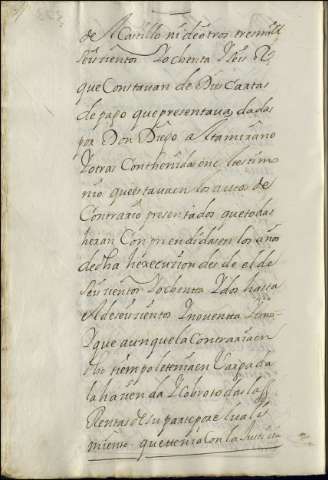 de Mostillo ni de otros tres mill
seisçientos Y ochenta Y seis Rs
que Constavan de Diez Cartas
de pago que presentava, dadas
por Don Diego Altamirano
Y otras Conthenidas en el testimo
nio que estava en los autos de
Contrario presentados que todas
heran Comprendidas en los años
de dha hexecuzion desde el de
seisçientos Y ochenta Y dos hasta
el de seisçientos Y noventa Y uno
Y que aunque la Contraria en
dho tiempo le tenia en vargada
la hazienda Y Cobro todas las
Rentas de su parte por el vali
miento que tenia Con la Justicia